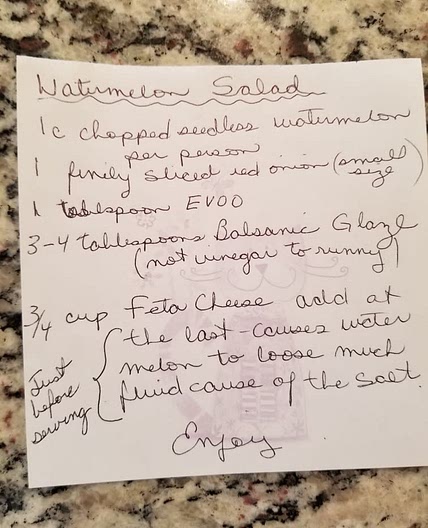 Watermelon Salad
1c chopped seedless watermelon
per person
1 finily sliced red onion (small
size)
1 tablespoon EVOO
3-4 tablespoons Balsamic Glaze
(not vinegar to runny)
3/4 cup Feta Cheese add at
the last-causes water
melon to loose much
fluid cause of the salt.
Just
before
serving
Enjoy